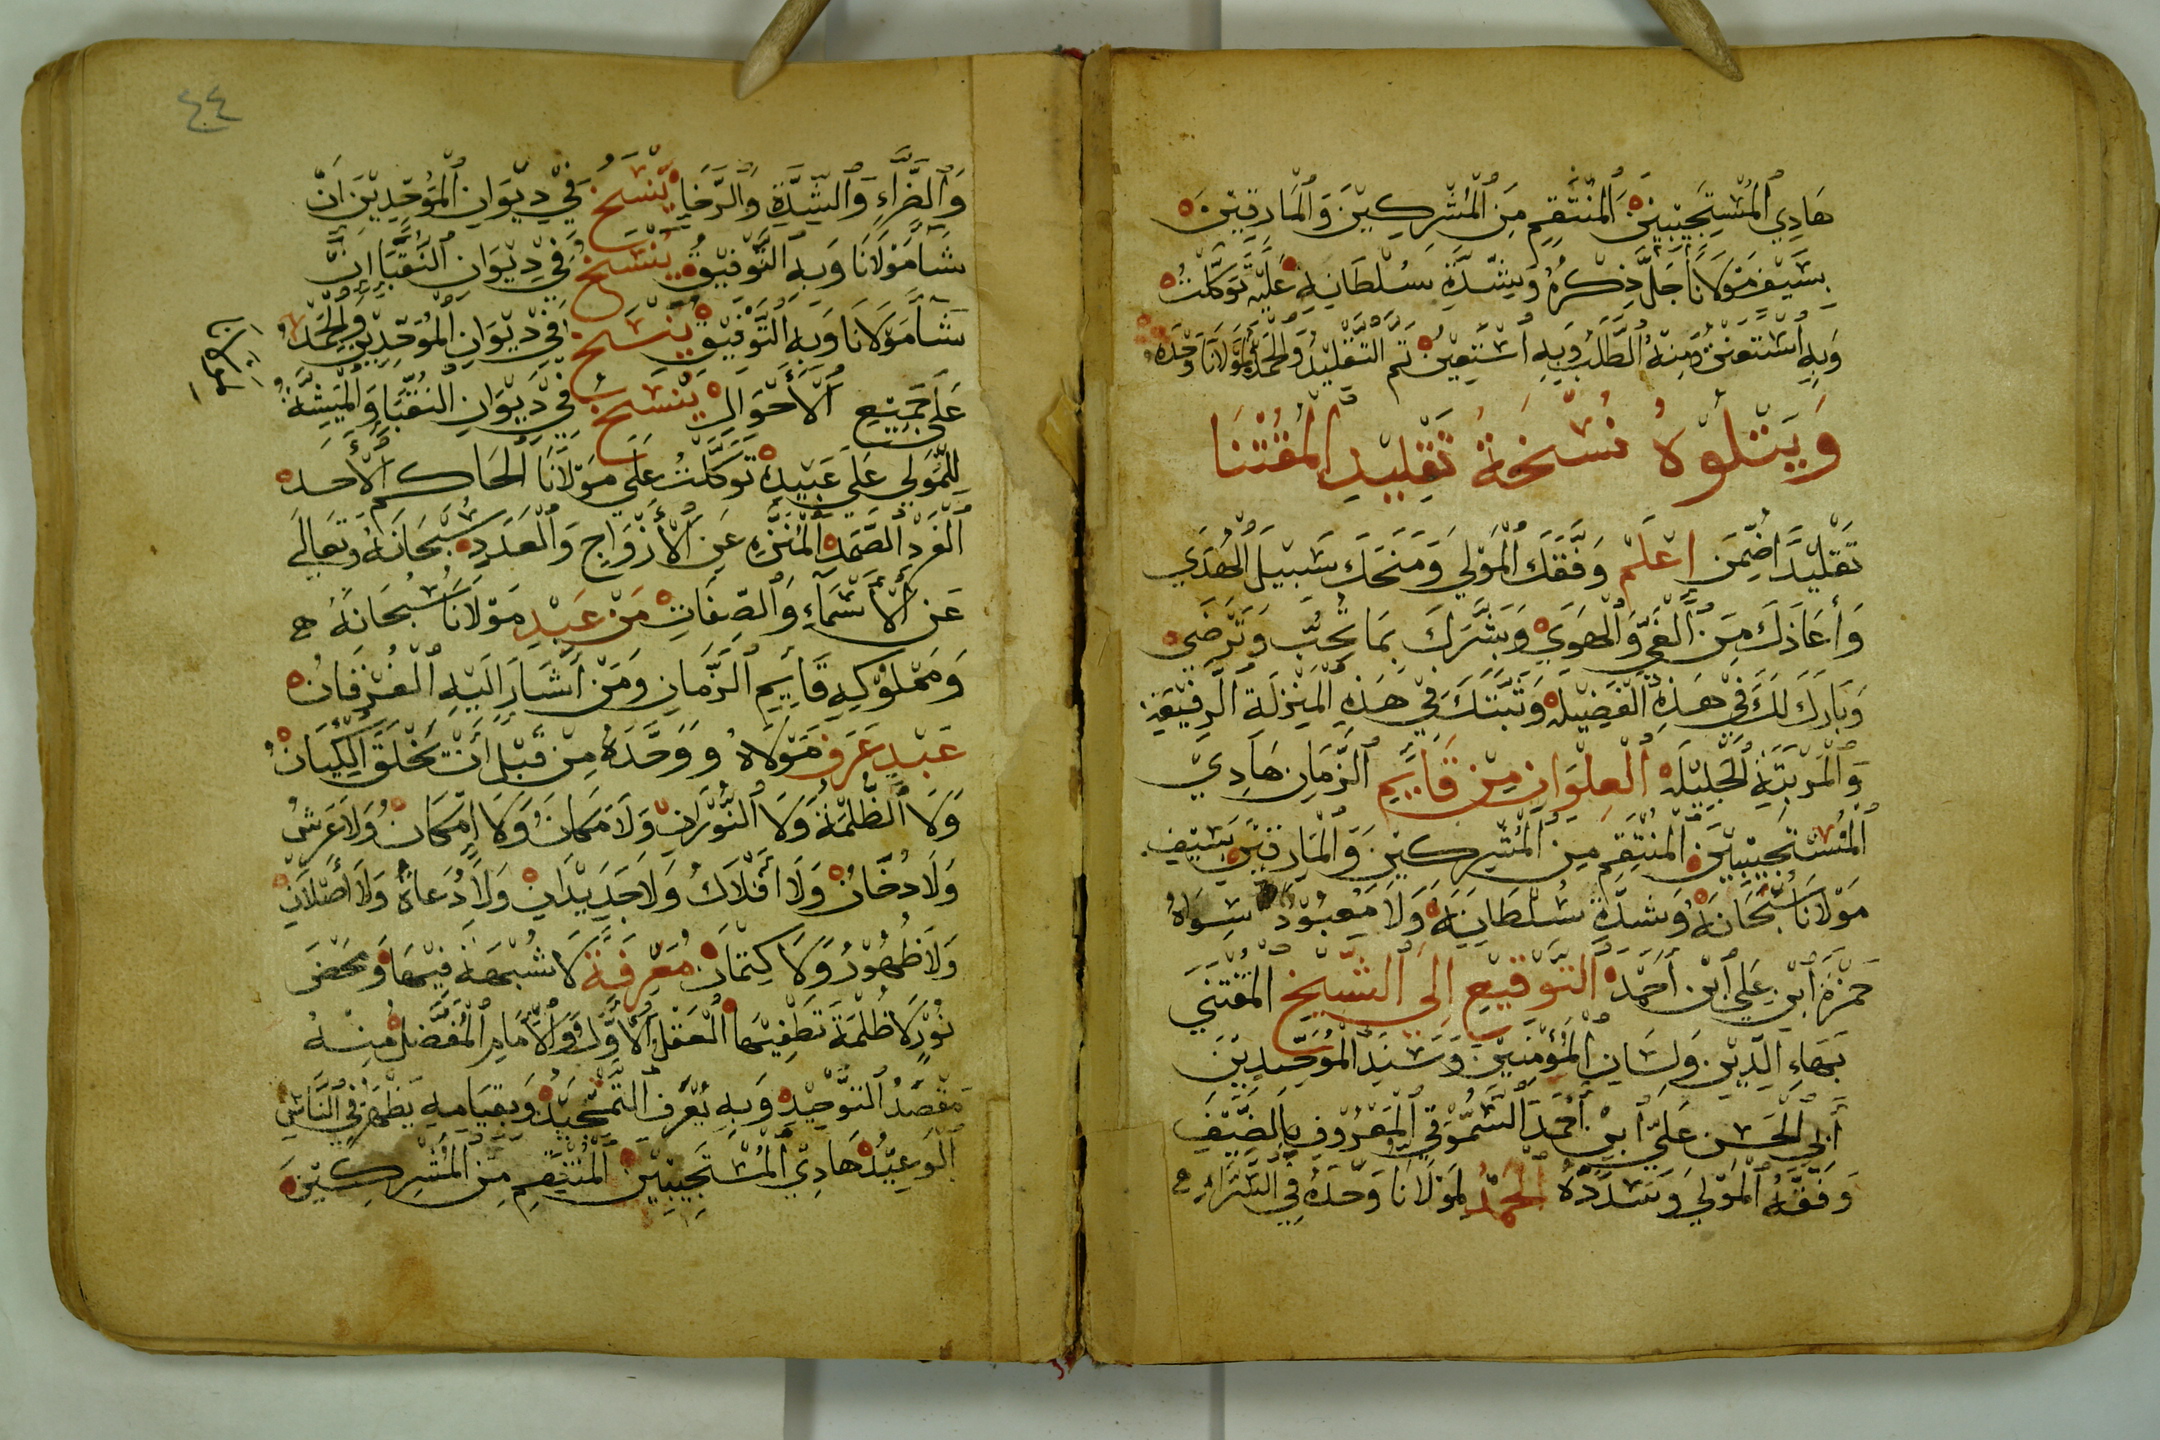 هَادِي ٱلْمُسْتَجِيْبِيْنَ ٱلْمُنْتَقِمِ مِنَ ٱلْمُشْرِكِيْنَ وَٱلْمَارِقِيْنَ
بِسَيْفِ مَوْلَانَا جَلَّ ذِكْرُهُ وَشِدَّةِ سُلْطَانِهِ عَلَيْهِ تَوَكَّلْتُ
وَبِهِ ٱسْتَعَنْتُ مِنْهُ ٱلطَّلَبُ وَبِهِ ٱسْتَعِيْنُ تَمَّ التَّقْلِيْدُ وَالْحَمْدُ لِمَوْلَانَا وَحْدَهُ
وَيَتْلُوْهُ نُسْخَةُ تَقْلِيْدِ الْمُقْتَنَا
تَقْلِيْدًا ضِمْنَ اِعْلَمْ وَفَّقَكَ ٱلْمَوْلَى وَمَنَحَكَ سَبِيْلَ ٱلْهُدَى
وَأَعَاذَكَ مِنَ ٱلْغَيِّ وَٱلْهَوَى وَبَشَّرَكَ بِمَا تُحِبُّ وَتَرْضَى
وَبَارَكَ لَكَ فِيْ هَذِهِ ٱلْفَضِيْلَةِ وَثَبَّتَكَ فِيْ هَذِهِ ٱلْمَنْزِلَةِ ٱلرَّفِيْعَةِ
وَٱلْمَرْتَبَةِ ٱلْجَلِيْلَةِ ٱلْعِلْوَانِ مِنْ قَايِمِ ٱلزَّمَانِ هَادِيْ
ٱلْمُسْتَجِيْبِيْنَ ٱلْمُنْتَقِمِ مِنَ ٱلْمُشْرِكِيْنَ وَٱلْمَارِقِيْنَ بِسَيْفِ
مَوْلَانَا سُبْحَانَهُ وَشِدَّةِ سُلْطَانِهِ وَلَا مَعْبُوْدَ سِوَاهُ
حَمْزَةَ ٱبْنِ عَلِي ٱبْنِ أَحْمَدْ ٱلتَّوْقِيْعِ اِلَى ٱلشَّيْخِ الْمُقْتَنَى
بَهَاءِ الدِّيْنِ وَلِسَانِ ٱلْمُؤْمِنِيْنَ وَسَنَدِ الْمُوَحِّدِيْنَ
أَبِي ٱلْحَسَنِ عَلِيِّ ٱبْنِ أَحْمَدَ ٱلسَّمُّوْقِي ٱلْمَعْرُوْفِ بِٱلضَّيْفِ
وَفَّقَهُ ٱلْمَوْلَى وَسَدَّدَهُ ٱلْحَمْدُ لِمَوْلَانَا وَحْدَهُ فِي ٱلسَّرَّاءِ
٤٤
وَٱلضَّرَّاءِ وَٱلشِّدَّةِ وَٱلرَّخَا يُنْسَخُ فِيْ دِيْوَانِ ٱلْمُوَحِّدِيْنَ اَنْ
شَا مَوْلَانَا وَبِهِ ٱلتَّوْفِيْقُ يُنْسَخُ فِيْ دِيْوَانِ ٱلنُّقَبَا اِنْ
شَا مَوْلَانَا وَبِهِ ٱلتَّوْفِيْقُ يُنْسَخُ فِيْ دِيْوَانِ ٱلْمُوَحِّدِيْنَ وَالْحَمْدُ
عَلَى جَمِيْعِ ٱلْأَحْوَالِ يُنْسَخُ فِيْ دِيْوَانِ النُّقَبَا وَالْمِنَّةُ
لِلْمَوْلَى عَلَى عَبِيْدِهِ تَوَكَّلْتُ عَلَى مَوْلَانَا ٱلْحَاكِمِ ٱلْأَحَدِ
ٱلْفَرْدِ ٱلصَّمَدِ ٱلْمُنَزَّهِ عَنِ ٱلْأَزْوَاجِ وَٱلْعَدَدِ سُبْحَانَهُ وَتَعَالَى
عَنِ ٱلْأَسْمَآءِ وَٱلصِّفَاتِ مِنْ عَبْدِ مَوْلَانَا سُبْحَانَهُ
وَمَمْلُوْكِهِ قَايِمِ ٱلزَّمَانِ وَمَنْ اَشَارَ اِلَيْهِ ٱلْفُرْقَانُ
عَبْدٍ عَرَفَ مَوْلَاهُ وَوَحَّدَهُ مِنْ قَبْلِ أَنْ يُخْلَقَ ٱلْكِيَانُ
وَلَا ٱلظُّلْمَةُ وَلَا ٱلنُّوْرَانِ وَلَا مَكَانُ وَلَا اِمْكَانُ وَلَا عَرْشُ
وَلَا دُخَانُ وَلَا اَفْلَاكُ وَلَا جَدِيْدَانِ وَلَا دُعَاةُ وَلَا أَصْلَانِ
وَلَا ظُهُوْرُ وَلَا كِتْمَانُ مَعْرِفَةً لَا شُبْهَةَ فِيْهَا وَمَحْضَ
نُوْرٍ لَا ظُلْمَةَ تُطْفِيْهَا ٱلْعَقْلِ ٱلْأَوَّلِ وَٱلْأَمَامِ ٱلْمُفَضَّلِ مِنْهُ
مَقْصَدُ ٱلتَّوْحِيْدِ وَبِهِ يُعْرَفُ ٱلتَّمْجِيْدُ وَبِقِيَامِهِ يَظْهَرُ فِي ٱلنَّاسِ
ٱلْوَعِيْدُ هَادِيْ ٱلْمُسْتَجِيْبِيْنَ ٱلْمُنْتَقِمِ مِنَ ٱلْمُشْرِكِيْنَ